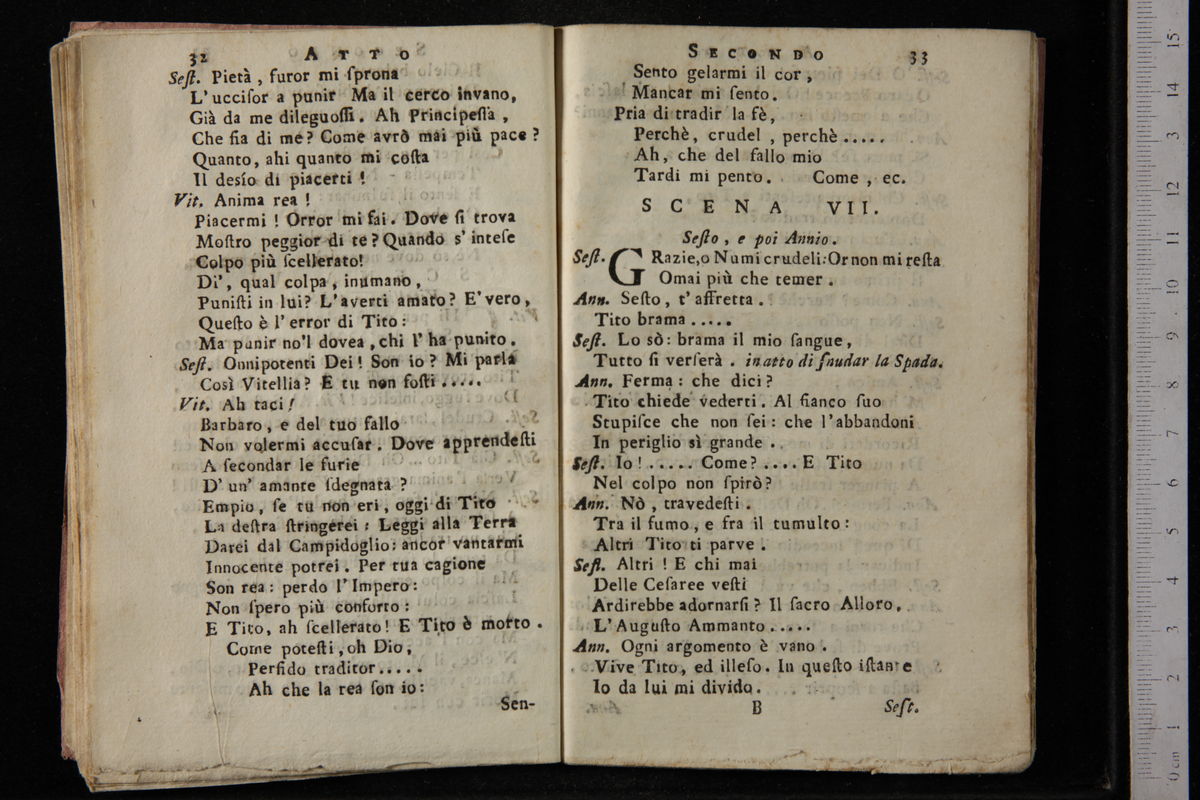 32 ATTO
Seſt. Pietà, furor mi ſprona
L'ucciſor a punir Ma il cerco invano,
Già da me dileguoſſi. Ah Principeſſa,
Che fia di me? Come avrò mai più pace?
Quanto, ahi quanto mi coſta
Il desío di piacerti!
Vit. Anima rea!
Piacermi! Orror mi fai. Dove ſi trova
Moſtro peggior di te? Quando s'inteſe
Colpo più ſcellerato!
Di', qual colpa, inumano,
Puniſti in lui? L'averti amato? E' vero,
Queſto è l'error di Tito:
Ma punir no'l dovea, chi l'ha punito.
Seſt. Onnipotenti Dei! Son io? Mi parla
Così Vitellia? E tu non foſti.....
Vit. Ah taci!
Barbaro, e del tuo fallo
Non volermi accuſar. Dove apprendeſti
A ſecondar le furie
D'un' amante ſdegnata?
Empio, ſe tu non eri, oggi di Tito
La deſtra ſtringerei: Leggi alla Terra
Darei dal Campidoglio: ancor vantarmi
Innocente potrei. Per tua cagione
Son rea: perdo l'Impero:
Non ſpero più conforto:
E Tito, ah ſcellerato! E Tito è morto.
Come poteſti, oh Dio,
Perfido traditor.....
Ah che la rea ſon io:
Sen-
SECONDO 33
Sento gelarmi il cor,
Mancar mi ſento.
Pria di tradir la fè,
Perchè, crudel, perchè.....
Ah, che del fallo mio
Tardi mi pento. Come, ec.
SCENA VII.
Seſto, e poi Annio.
Seſt. GRazie, o Numi crudeli: Or non mi reſta
Omai più che temer.
Ann. Seſto, t'affretta.
Tito brama.....
Seſt. Lo sò: brama il mio ſangue,
Tutto ſi verſerà. in atto di ſnudar la Spada.
Ann. Ferma: che dici?
Tito chiede vederti. Al fianco ſuo
Stupiſce che non ſei: che l'abbandoni
In periglio sì grande.
Seſt. Io!..... Come?.... E Tito
Nel colpo non ſpirò?
Ann. Nò, travedeſti.
Tra il fumo, e fra il tumulto:
Altri Tito ti parve.
Seſt. Altri! E chi mai
Delle Ceſaree veſti
Ardirebbe adornarſi? Il ſacro Alloro,
L'Auguſto Ammanto.....
Ann. Ogni argomento è vano.
Vive Tito, ed illeſo. In queſto iſtante
Io da lui mi divido.
B Seſt.
15
14
13
12
11
10
9
8
7
6
5
4
3
2
1
0 cm